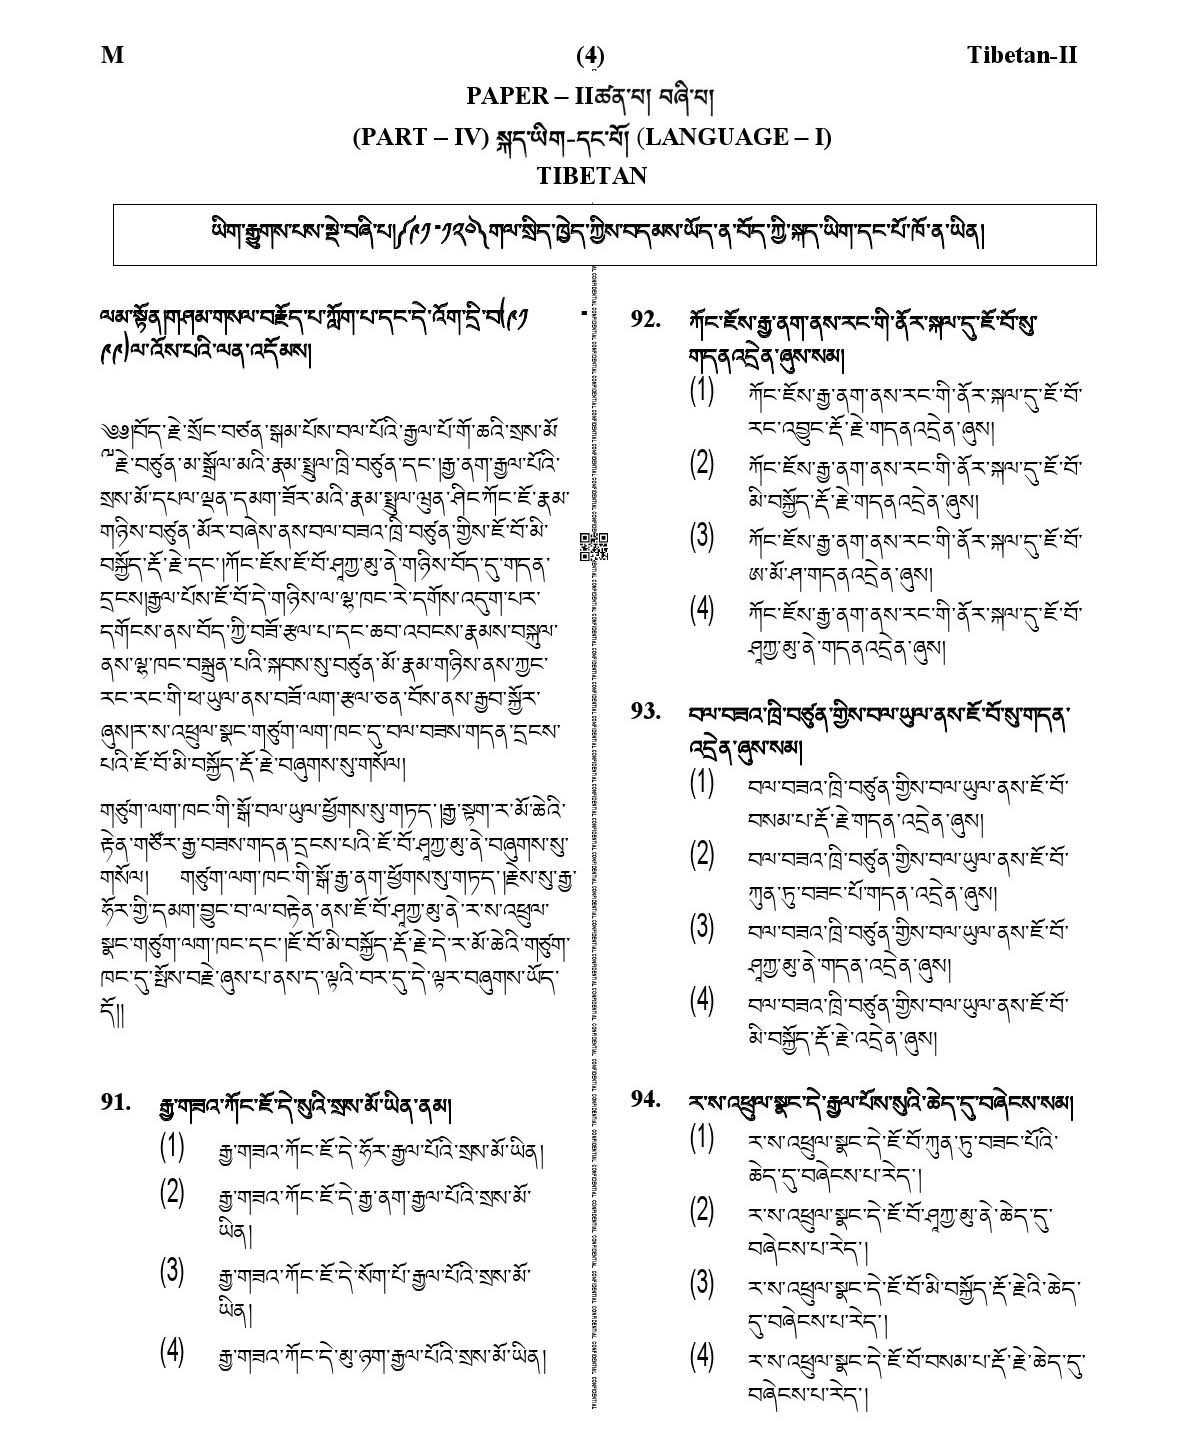 M
(4)
Tibetan-II
PAPER – IIཚན་པ། བཞི་པ།
(PART – IV) སྐད་ཡིག-དང་པོ། (LANGUAGE – I)
TIBETAN
ཡིག་རྒྱུགས་པས་སྡེ་བཞི་པ།༼༩༡-༡༢༠༽གལ་སྲིད་ཁྱེད་ཀྱིས་བདམས་ཡོད་ན་བོད་ཀྱི་སྐད་ཡིག་དང་པོ་ཁོ་ན་ཡིན།
ལམ་སྟོན།གཤམ་གསལ་བརྗོད་པ་ཀློག་པ་དང་དེ་འོག་དྲི་བ(༩༡ -
༩༩)ལ་འོས་པའི་ལན་འདོམས།
༄༅།བོད་རྗེ་སྲོང་བཙན་སྒམ་པོས་བལ་པོའི་རྒྱལ་པོ་གོ་ཆའི་སྲས་མོ
རྗེ་བཙུན་མ་སྒྲོལ་མའི་རྣམ་སྤྲུལ་ཁྲི་བཙུན་དང་།རྒྱ་ནག་རྒྱལ་པོའི་
སྲས་མོ་དཔལ་ལྡན་དམག་ཟོར་མའི་རྣམ་སྤྲུལ་ཝུན་ཤིང་ཀོང་ཇོ་རྣམ་
གཉིས་བཙུན་མོར་བཞེས་ནས་བལ་བཟའ་ཁྲི་བཙུན་གྱིས་ཇོ་བོ་མི་
བསྐྱོད་རྡོ་རྗེ་དང་།ཀོང་ཇོས་ཇོ་བོ་ཤཱཀྱ་མུ་ནེ་གཉིས་བོད་དུ་གདན་
དྲངས།རྒྱལ་པོས་ཇོ་བོ་དེ་གཉིས་ལ་ལྷ་ཁང་རེ་དགོས་འདུག་པར་
དགོངས་ནས་བོད་ཀྱི་བཟོ་རྩལ་པ་དང་ཆབ་འབངས་རྣམས་བསྐུལ་
ནས་ལྷ་ཁང་བསྐྲུན་པའི་སྐབས་སུ་བཙུན་མོ་རྣམ་གཉིས་ནས་ཀྱང་
རང་རང་གི་ཕ་ཡུལ་ནས་བཟོ་ལག་རྩལ་ཅན་བོས་ནས་རྒྱབ་སྐྱོར་
ཞུས།ར་ས་འཕྲུལ་སྣང་གཙུག་ལག་ཁང་དུ་བལ་བཟས་གདན་དྲངས་
པའི་ཇོ་བོ་མི་བསྐྱོད་རྡོ་རྗེ་བཞུགས་སུ་གསོལ།
གཙུག་ལག་ཁང་གི་སྒོ་བལ་ཡུལ་ཕྱོགས་སུ་གཏད་།རྒྱ་སྟག་ར་མོ་ཆེའི་
རྟེན་གཙོར་རྒྱ་བཟས་གདན་དྲངས་པའི་ཇོ་བོ་ཤཱཀྱ་མུ་ནེ་བཞུགས་སུ་
གསོལ། གཙུག་ལག་ཁང་གི་སྒོ་རྒྱ་ནག་ཕྱོགས་སུ་གཏད་།རྗེས་སུ་རྒྱ་
ཧོར་གྱི་དམག་བྱུང་བ་ལ་བརྟེན་ནས་ཇོ་བོ་ཤཱཀྱ་མུ་ནེ་ར་ས་འཕྲུལ་
སྣང་གཙུག་ལག་ཁང་དང་།ཇོ་བོ་མི་བསྐྱོད་རྡོ་རྗེ་དེ་ར་མོ་ཆེའི་གཙུག་
ཁང་དུ་སྤོས་བརྗེ་ཞུས་པ་ནས་ད་ལྟའི་བར་དུ་དེ་ལྟར་བཞུགས་ཡོད་
དོ།།
91. རྒྱ་གཟའ་ཀོང་ཇོ་དེ་སུའི་སྲས་མོ་ཡིན་ནམ།
(1) རྒྱ་གཟའ་ཀོང་ཇོ་དེ་ཧོར་རྒྱལ་པོའི་སྲས་མོ་ཡིན།
(2) རྒྱ་གཟའ་ཀོང་ཇོ་དེ་རྒྱ་ནག་རྒྱལ་པོའི་སྲས་མོ་
ཡིན།
(3) རྒྱ་གཟའ་ཀོང་ཇོ་དེ་སོག་པོ་རྒྱལ་པོའི་སྲས་མོ་
ཡིན།
(4) རྒྱ་གཟའ་ཀོང་དེ་མུ་ཉག་རྒྱལ་པོའི་སྲས་མོ་ཡིན།
92. ཀོང་ཇོས་རྒྱ་ནག་ནས་རང་གི་ནོར་སྐལ་དུ་ཇོ་བོ་སུ་
གདནའདྲེན་ཞུས་སམ།
(1) ཀོང་ཇོས་རྒྱ་ནག་ནས་རང་གི་ནོར་སྐལ་དུ་ཇོ་བོ་
རང་འབྱུང་རྡོ་རྗེ་གདནའདྲེན་ཞུས།
(2) ཀོང་ཇོས་རྒྱ་ནག་ནས་རང་གི་ནོར་སྐལ་དུ་ཇོ་བོ་
མི་བསྐྱོད་རྡོ་རྗེ་གདནའདྲེན་ཞུས།
(3) ཀོང་ཇོས་རྒྱ་ནག་ནས་རང་གི་ནོར་སྐལ་དུ་ཇོ་བོ་
ཨ་མོ་ཤ་གདནའདྲེན་ཞུས།
(4) ཀོང་ཇོས་རྒྱ་ནག་ནས་རང་གི་ནོར་སྐལ་དུ་ཇོ་བོ་
ཤཱཀྱ་མུ་ནེ་གདནའདྲེན་ཞུས།
93. བལ་བཟའ་ཁྲི་བཙུན་གྱིས་བལ་ཡུལ་ནས་ཇོ་བོ་སུ་གདན་
འདྲེན་ཞུས་སམ།
(1) བལ་བཟའ་ཁྲི་བཙུན་གྱིས་བལ་ཡུལ་ནས་ཇོ་བོ་
བསམ་པ་རྡོ་རྗེ་གདན་འདྲེན་ཞུས།
(2) བལ་བཟའ་ཁྲི་བཙུན་གྱིས་བལ་ཡུལ་ནས་ཇོ་བོ་
ཀུན་ཏུ་བཟང་པོ་གདན་འདྲེན་ཞུས།
(3) བལ་བཟའ་ཁྲི་བཙུན་གྱིས་བལ་ཡུལ་ནས་ཇོ་བོ་
ཤཱཀྱ་མུ་ནེ་གདན་འདྲེན་ཞུས།
(4) བལ་བཟའ་ཁྲི་བཙུན་གྱིས་བལ་ཡུལ་ནས་ཇོ་བོ་
མི་བསྐྱོད་རྡོ་རྗེ་འདྲེན་ཞུས།
94. ར་ས་འཕྲུལ་སྣང་དེ་རྒྱལ་པོས་སུའི་ཆེད་དུ་བཞེངས་སམ།
(1) ར་ས་འཕྲུལ་སྣང་དེ་ཇོ་བོ་ཀུན་ཏུ་བཟང་པོའི་
ཆེད་དུ་བཞེངས་པ་རེད་།
(2) ར་ས་འཕྲུལ་སྣང་དེ་ཇོ་བོ་ཤཱཀྱ་མུ་ནེ་ཆེད་དུ་
བཞེངས་པ་རེད་།
(3) ར་ས་འཕྲུལ་སྣང་དེ་ཇོ་བོ་མི་བསྐྱོད་རྡོ་རྗེའི་ཆེད་
དུ་བཞེངས་པ་རེད་།
(4) ར་ས་འཕྲུལ་སྣང་དེ་ཇོ་བོ་བསམ་པ་རྡོ་རྗེ་ཆེད་དུ་
བཞེངས་པ་རེད་།